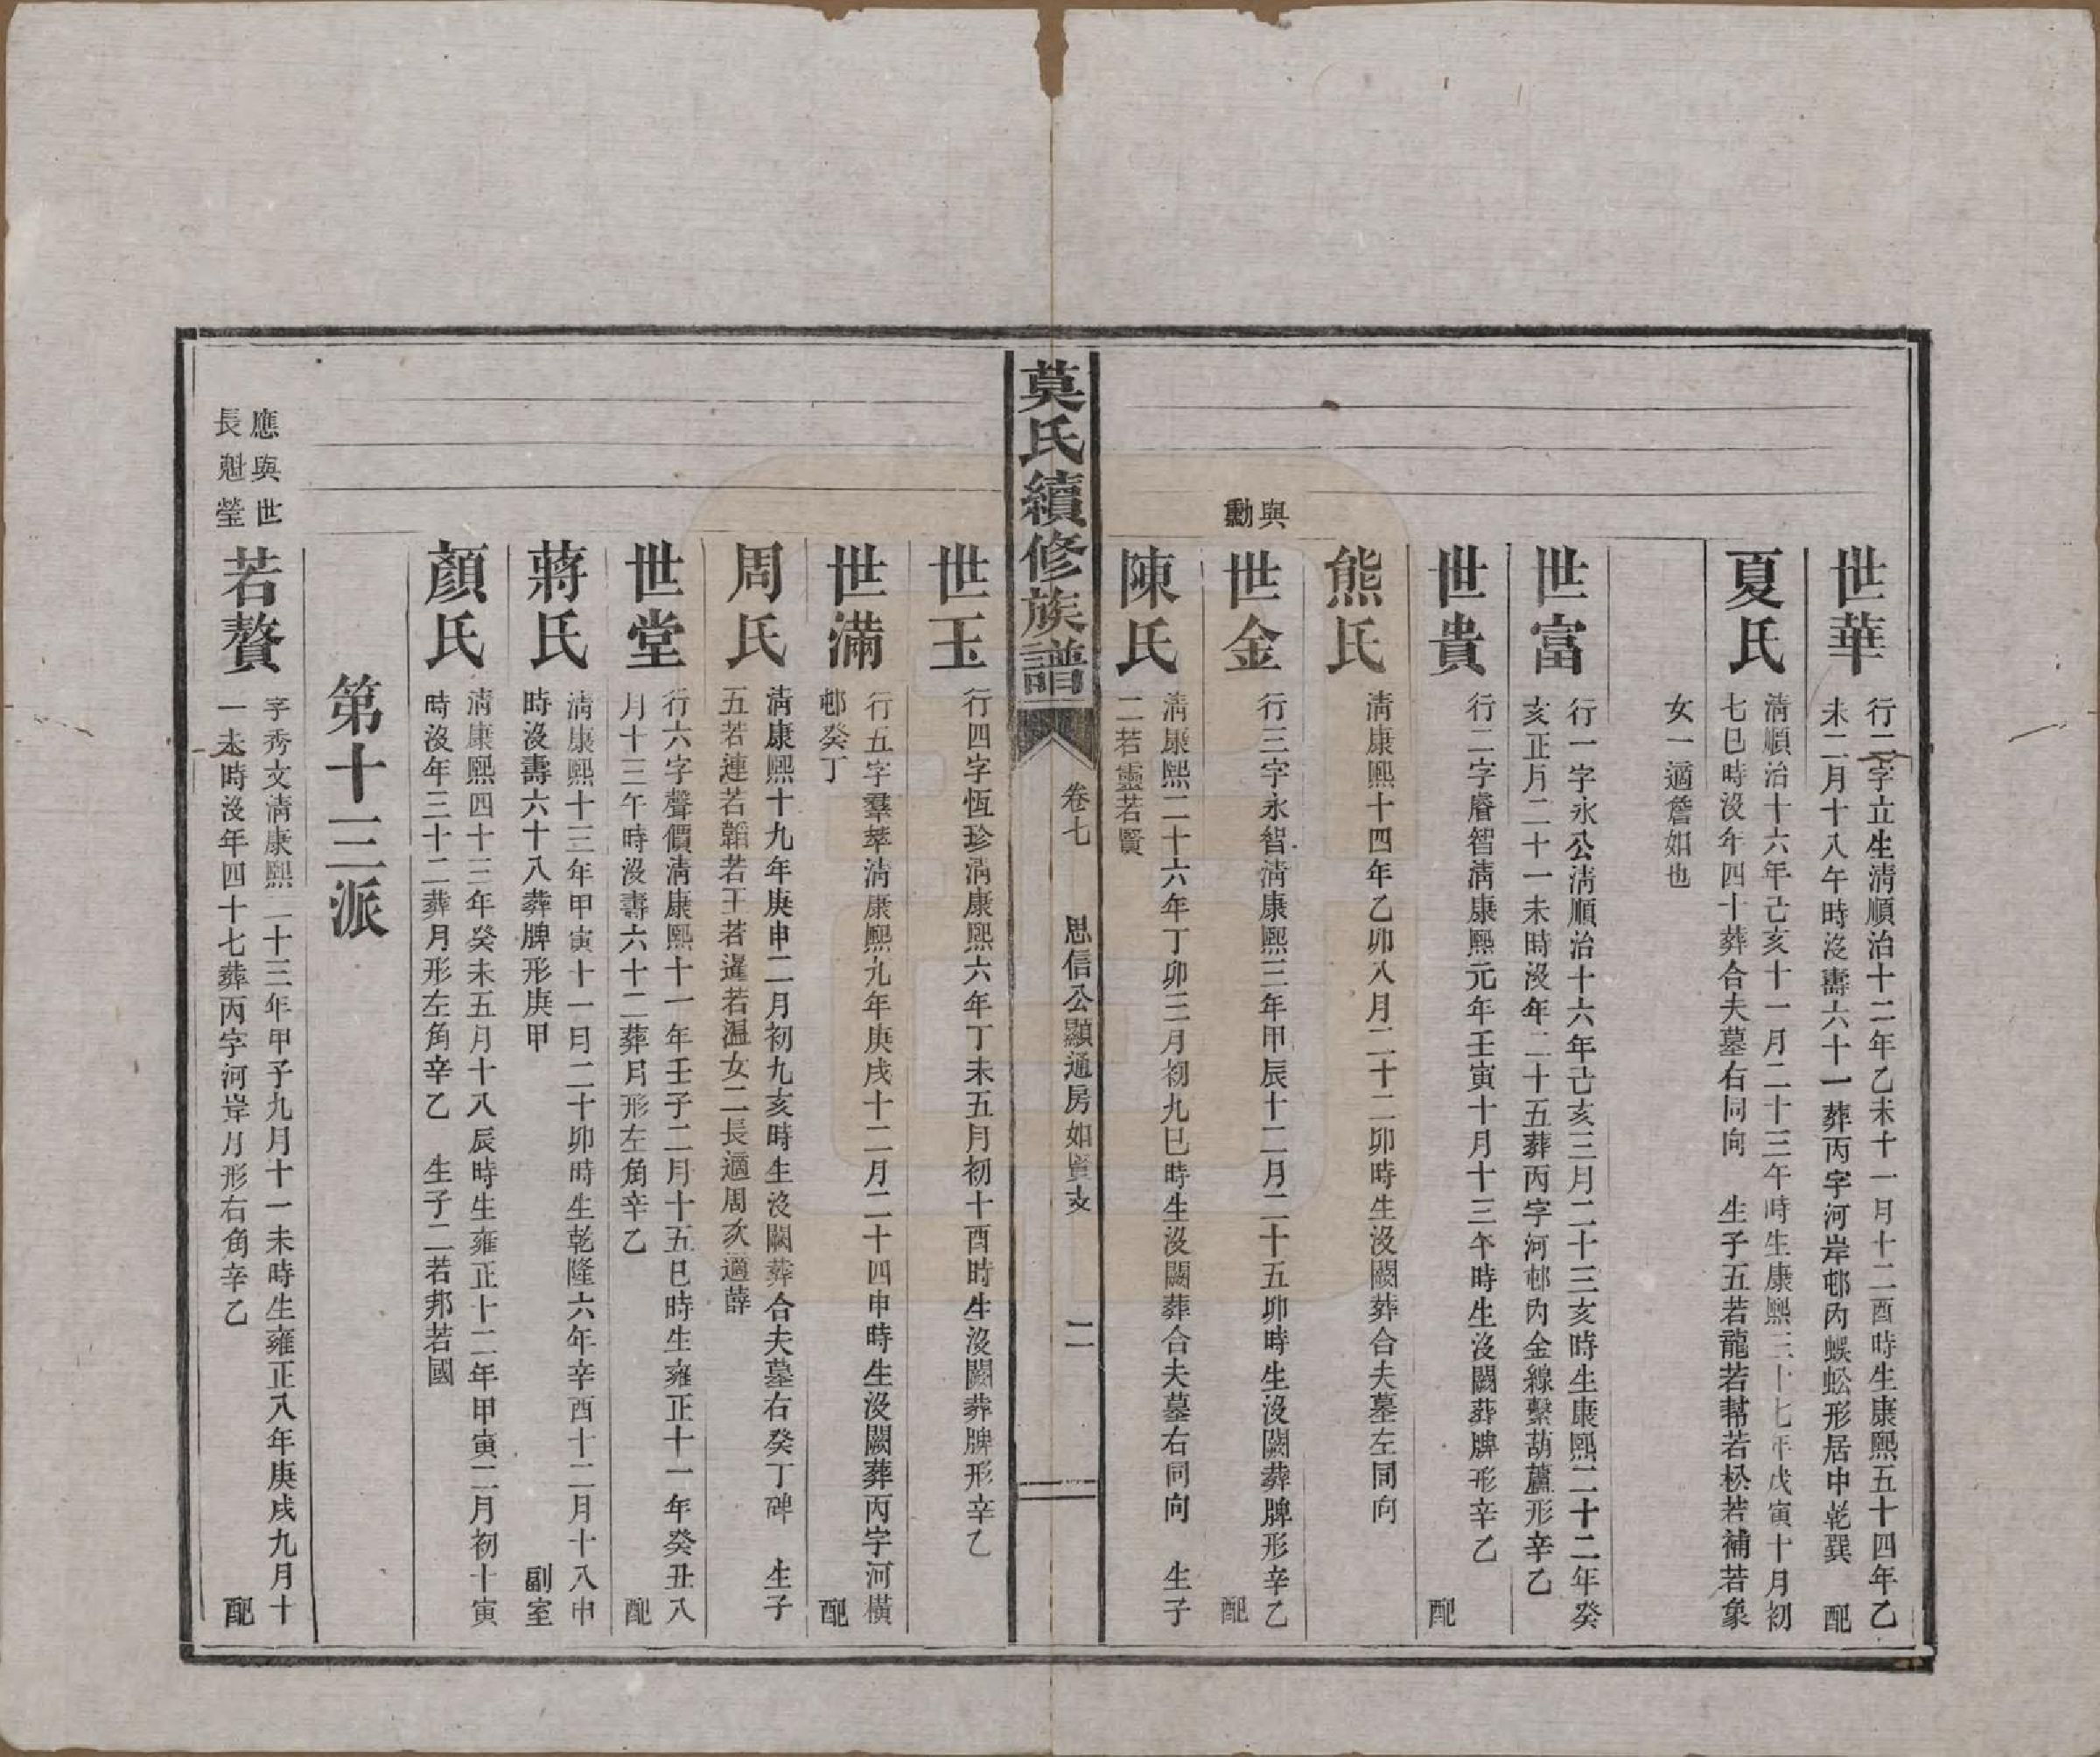 世華
行二字立生清順治十二年乙未十一月十二酉時生康熙五十四年乙
未二月十八午時沒壽六十一葬丙字河岸邨內蜈蚣形居中乾巽　配
夏氏
清順治十六年己亥十一月二十三午時生康熙三十七年戊寅十月初
七巳時沒年四十葬合夫墓右同向　生子五若龍若幇若松若補若象
女一適詹如也
世富
行一字永公清順治十六年己亥三月二十三亥時生康熙二十二年癸
亥正月二十一未時沒年二十五葬丙字河邨內金線繫葫蘆形辛乙
世貴
行二字睿智清康熙元年壬寅十月十三午時生沒闕葬牌形辛乙　配
熊氏
清康熙十四年乙卯八月二十二卯時生沒闕葬合夫墓左同向
與
勳
世金
行三字永智清康熙三年甲辰十二月二十五卯時生沒闕葬牌形辛乙
配
陳氏
清康熙二十六年丁卯三月初九巳時生沒闕葬合夫墓右同向　生子
二若靈若賢
莫氏續修族譜
卷七　思信公顯通房如賓支　二
世玉
行四字恆珍清康熙六年丁未五月初十酉時生沒闕葬牌形辛乙
世滿
行五字羣萃清康熙九年庚戌十二月二十四申時生沒闕葬丙字河橫
邨癸丁　配
周氏
清康熙十九年庚申二月初九亥時生沒闕葬合夫墓右癸丁碑　生子
五若連若韜若王若暹若温女二長適周次適薛
世堂
行六字聲價清康熙十一年壬子二月十五巳時生雍正十一年癸丑八
月十三午時沒壽六十二葬月形左角辛乙　配
蔣氏
清康熙十三年甲寅十一月二十卯時生乾隆六年辛酉十二月十八申
時沒壽六十八葬牌形庚甲　副室
顏氏
清康熙四十二年癸未五月十八辰時生雍正十二年甲寅二月初十寅
時沒年三十二葬月形左角辛乙　生子二若邦若國
第十三派
應與世
長魁瑩
若贅
字秀文清康熙二十三年甲子九月十一未時生雍正八年庚戌九月十
一未時沒年四十七葬丙字河岸月形右角辛乙　配